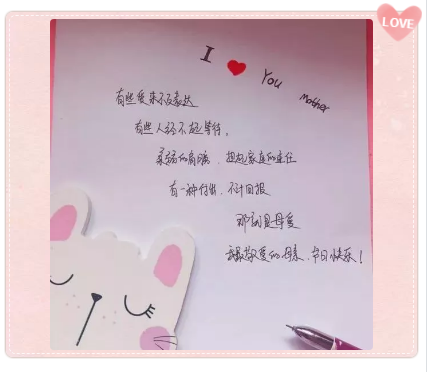 LOVE
I ❤ You Mother
有些爱来不及表达
有些人经不起等待。
柔弱的肩膀,担起家庭的重任
有一种付出,不计回报
那就是母爱
我最敬爱的母亲,节日快乐!